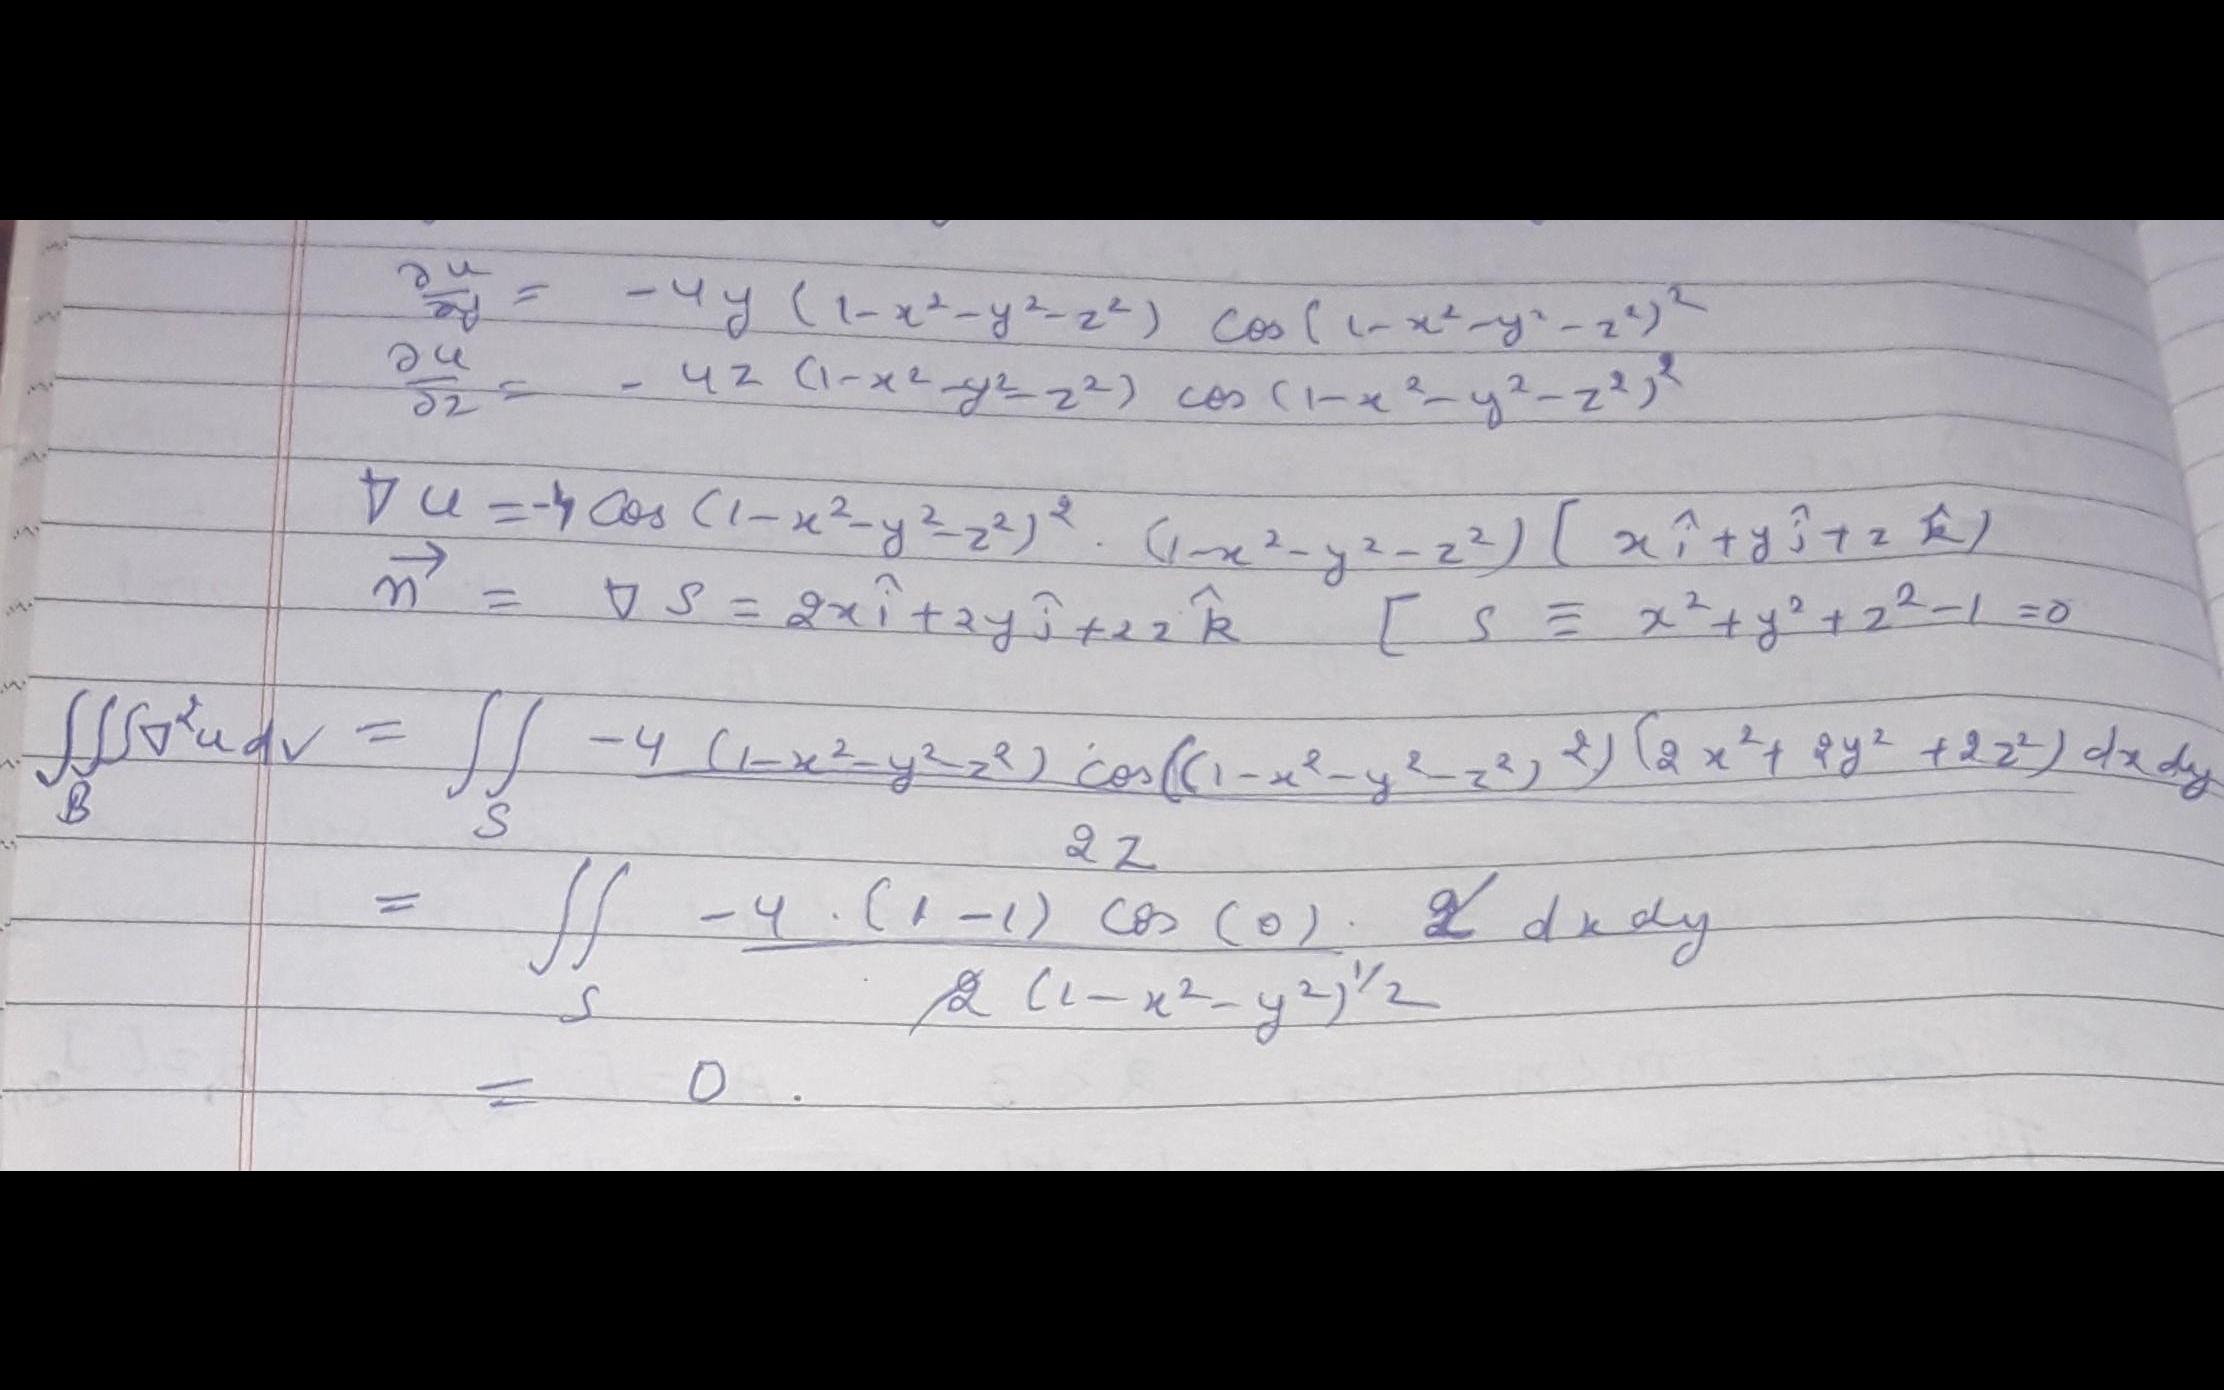 ∂u/∂y = -4y (1-x²-y²-z²) cos(1-x²-y²-z²)²
∂u/∂z = -4z (1-x²-y²-z²) cos(1-x²-y²-z²)²
∇u = -4 cos(1-x²-y²-z²)² . (1-x²-y²-z²) [xî+yĵ+zk̂)
n⃗ = ∇S = 2xî+2yĵ+2zk̂ [ S ≡ x²+y²+z²-1=0
∭_B ∇²u dv = ∬_S -4 (1-x²-y²-z²) cos((1-x²-y²-z²)²) (2x²+2y²+2z²) dx dy
2z
= ∬_S -4 . (1-1) cos(0) . 2 dx dy
2 (1-x²-y²)^1/2
= 0 .